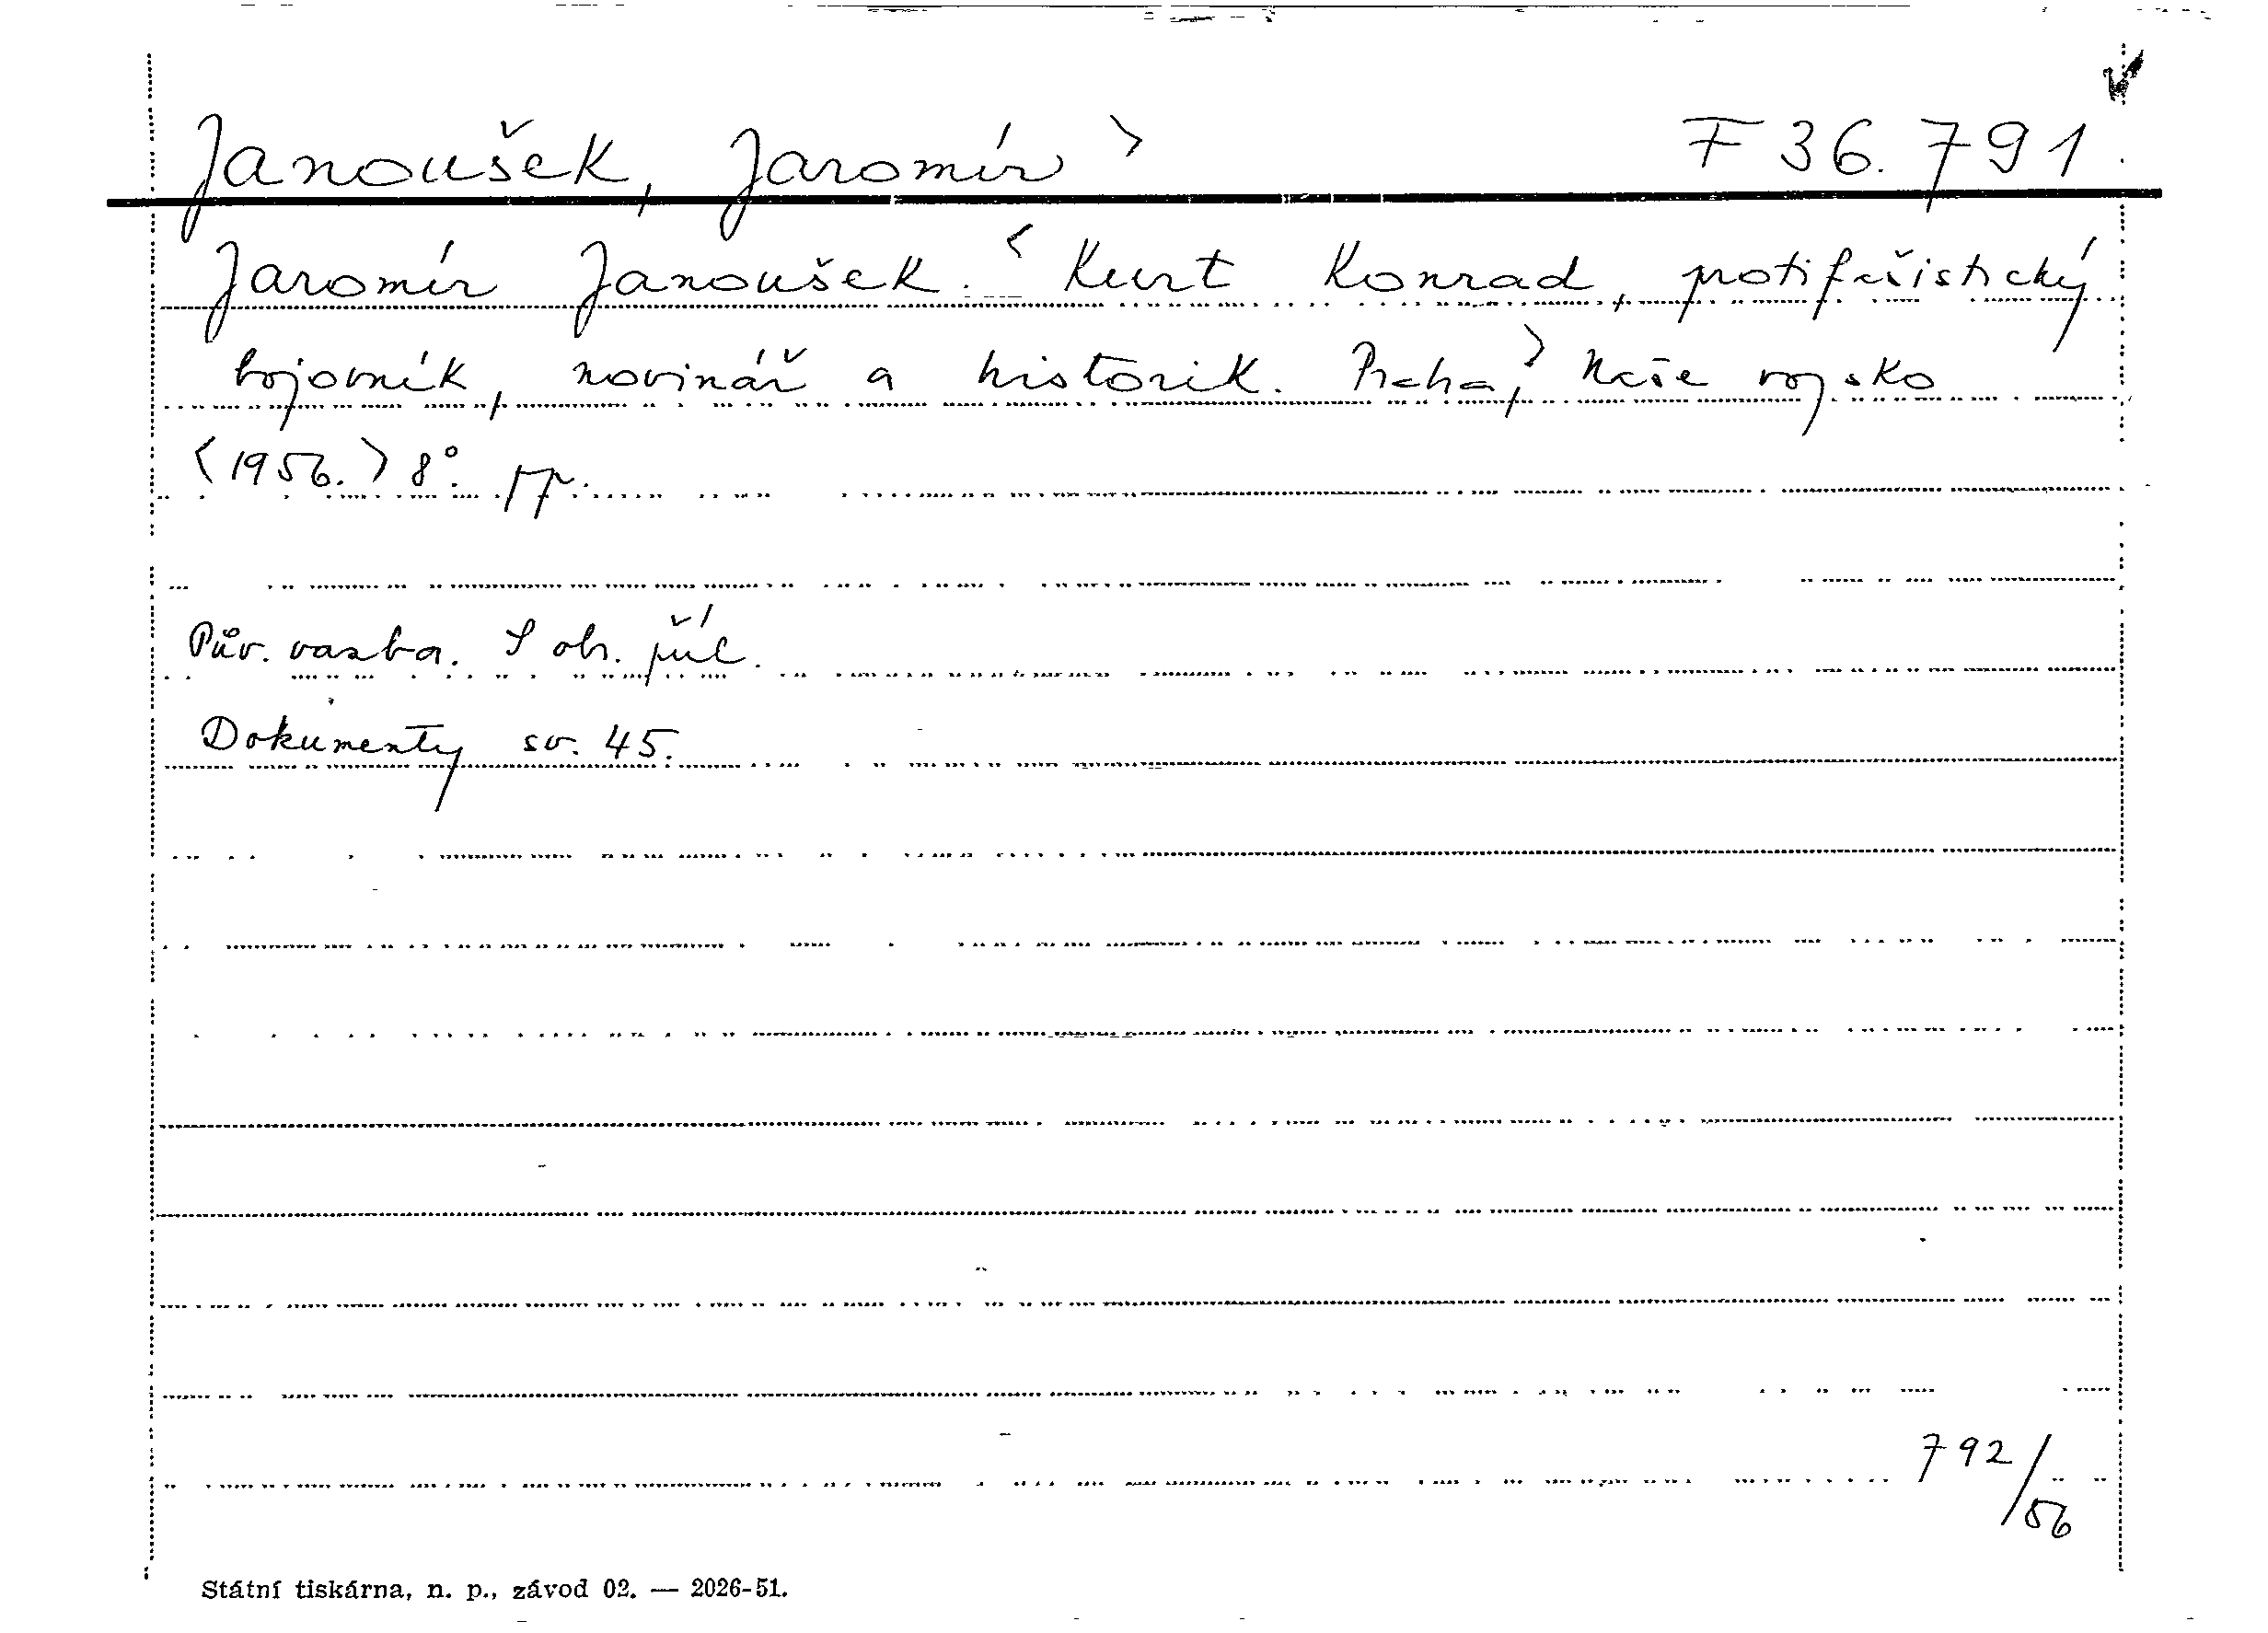 Janoušek, Jaromír > F 36.791
Jaromír Janoušek. < Kurt Konrad, protifašistický
bojovník, novinář a historik. Praha, > Naše vojsko
<1956.> 8°. pp.
Pův. vazba. S obr. příl.
Dokumenty sv. 45.
792/56
Státní tiskárna, n. p., závod 02. — 2026-51.